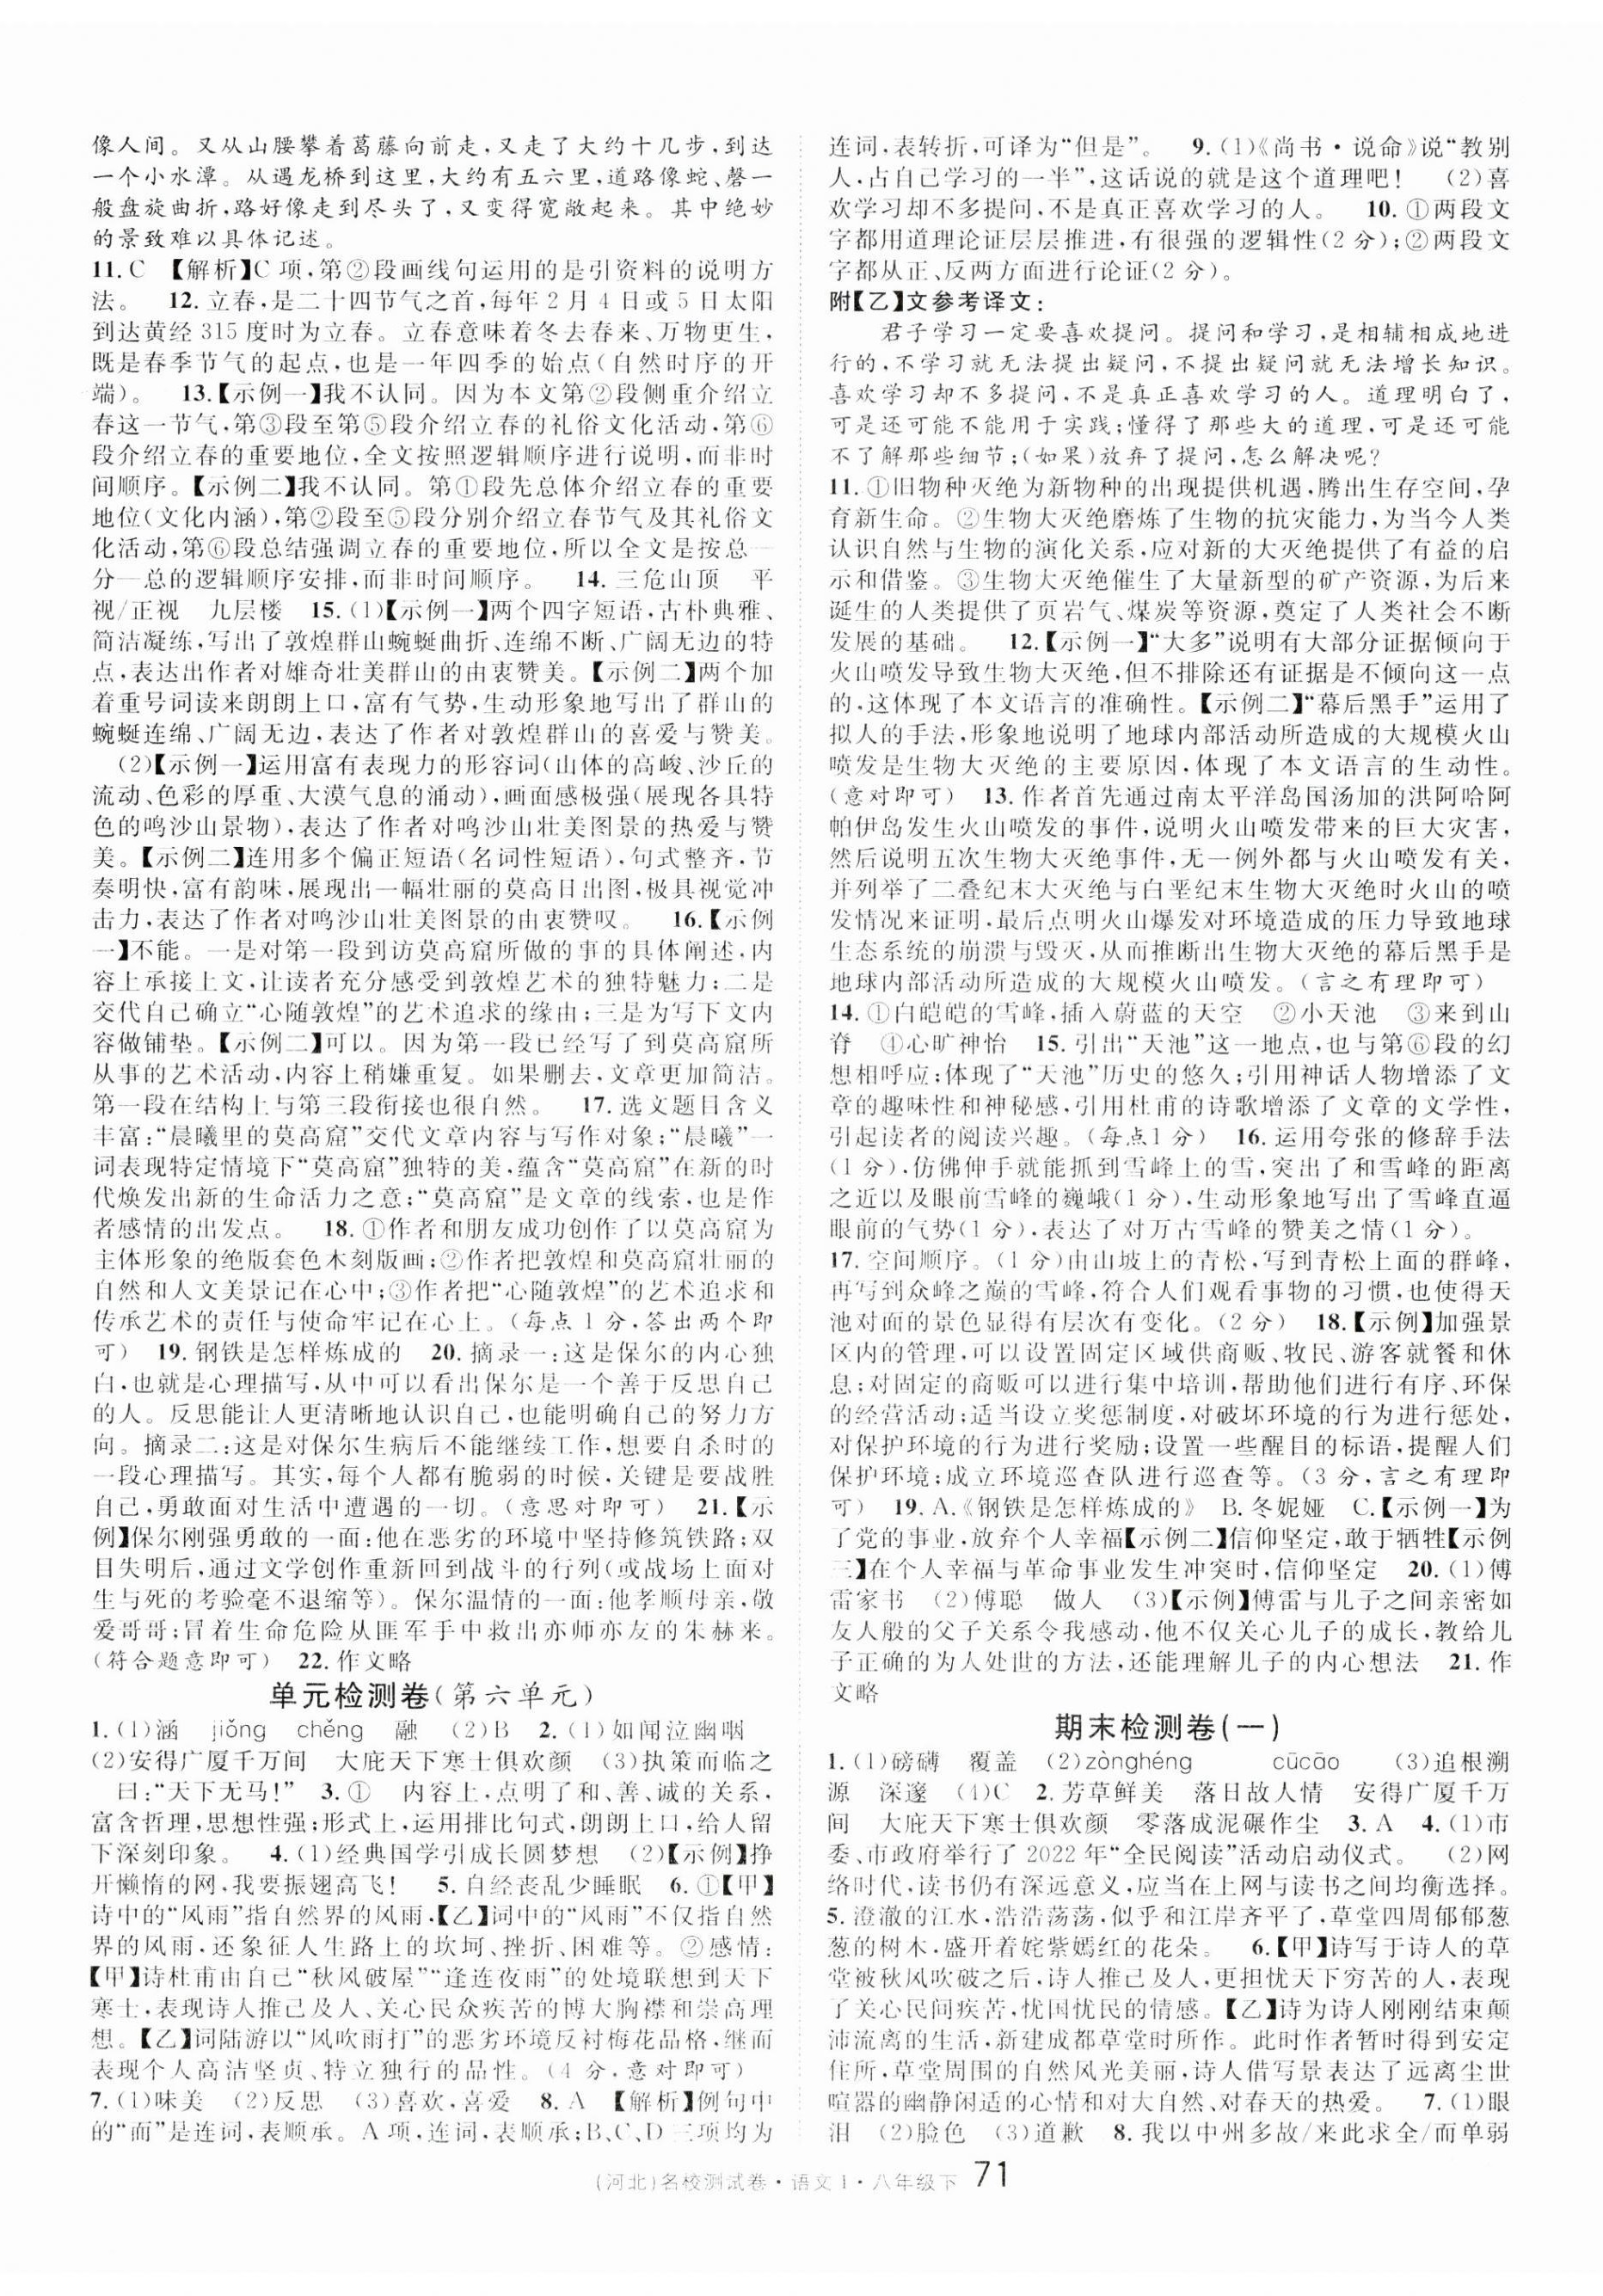 像人间。又从山腰攀着葛藤向前走,又走了大约十几步,到达
一个小水潭。从遇龙桥到这里,大约有五六里,道路像蛇、磬一
般盘旋曲折,路好像走到尽头了,又变得宽敞起来。其中绝妙
的景致难以具体记述。
11.C 【解析】C项,第②段画线句运用的是引资料的说明方
法。 12.立春,是二十四节气之首,每年2月4日或5日太阳
到达黄经315度时为立春。立春意味着冬去春来、万物更生,
既是春季节气的起点,也是一年四季的始点(自然时序的开
端)。 13.【示例一】我不认同。因为本文第②段侧重介绍立
春这一节气,第③段至第⑤段介绍立春的礼俗文化活动,第⑥
段介绍立春的重要地位,全文按照逻辑顺序进行说明,而非时
间顺序。【示例二】我不认同。第①段先总体介绍立春的重要
地位(文化内涵),第②段至⑤段分别介绍立春节气及其礼俗文
化活动,第⑥段总结强调立春的重要地位,所以全文是按总—
分—总的逻辑顺序安排,而非时间顺序。 14.三危山顶 平
视/正视 九层楼 15.(1)【示例一】两个四字短语,古朴典雅、
简洁凝练,写出了敦煌群山蜿蜒曲折、连绵不断、广阔无边的特
点,表达出作者对雄奇壮美群山的由衷赞美。【示例二】两个加
着重号词读来朗朗上口,富有气势,生动形象地写出了群山的
蜿蜒连绵、广阔无边,表达了作者对敦煌群山的喜爱与赞美。
(2)【示例一】运用富有表现力的形容词(山体的高峻、沙丘的
流动、色彩的厚重、大漠气息的涌动),画面感极强(展现各具特
色的鸣沙山景物),表达了作者对鸣沙山壮美图景的热爱与赞
美。【示例二】连用多个偏正短语(名词性短语),句式整齐,节
奏明快,富有韵味,展现出一幅壮丽的莫高日出图,极具视觉冲
击力,表达了作者对鸣沙山壮美图景的由衷赞叹。 16.【示例
一】不能。一是对第一段到访莫高窟所做的事的具体阐述,内
容上承接上文,让读者充分感受到敦煌艺术的独特魅力;二是
交代自己确立“心随敦煌”的艺术追求的缘由;三是为写下文内
容做铺垫。【示例二】可以。因为第一段已经写了到莫高窟所
从事的艺术活动,内容上稍嫌重复。如果删去,文章更加简洁。
第一段在结构上与第三段衔接也很自然。 17.选文题目含义
丰富:“晨曦里的莫高窟”交代文章内容与写作对象;“晨曦”一
词表现特定情境下“莫高窟”独特的美,蕴含“莫高窟”在新的时
代焕发出新的生命活力之意;“莫高窟”是文章的线索,也是作
者感情的出发点。 18.①作者和朋友成功创作了以莫高窟为
主体形象的绝版套色木刻版画;②作者把敦煌和莫高窟壮丽的
自然和人文美景记在心中;③作者把“心随敦煌”的艺术追求和
传承艺术的责任与使命牢记在心上。(每点1分,答出两个即
可) 19.钢铁是怎样炼成的 20.摘录一:这是保尔的内心独
白,也就是心理描写,从中可以看出保尔是一个善于反思自己
的人。反思能让人更清晰地认识自己,也能明确自己的努力方
向。摘录二:这是对保尔生病后不能继续工作,想要自杀时的
一段心理描写。其实,每个人都有脆弱的时候,关键是要战胜
自己,勇敢面对生活中遭遇的一切。(意思对即可) 21.【示
例】保尔刚强勇敢的一面:他在恶劣的环境中坚持修筑铁路;双
目失明后,通过文学创作重新回到战斗的行列(或战场上面对
生与死的考验毫不退缩等)。保尔温情的一面:他孝顺母亲,敬
爱哥哥;冒着生命危险从匪军手中救出亦师亦友的朱赫来。
(符合题意即可) 22.作文略
单元检测卷(第六单元)
1.(1)涵 jiǒng chěng 融 (2)B 2.(1)如闻泣幽咽
(2)安得广厦千万间 大庇天下寒士俱欢颜 (3)执策而临之
曰:“天下无马!” 3.① 内容上,点明了和、善、诚的关系,
富含哲理,思想性强;形式上,运用排比句式,朗朗上口,给人留
下深刻印象。 4.(1)经典国学引成长圆梦想 (2)【示例】挣
开懒惰的网,我要振翅高飞! 5.自经丧乱少睡眠 6.①【甲】
诗中的“风雨”指自然界的风雨,【乙】词中的“风雨”不仅指自然
界的风雨,还象征人生路上的坎坷、挫折、困难等。②感情:
【甲】诗杜甫由自己“秋风破屋”“逢连夜雨”的处境联想到天下
寒士,表现诗人推己及人、关心民众疾苦的博大胸襟和崇高理
想。【乙】词陆游以“风吹雨打”的恶劣环境反衬梅花品格,继而
表现个人高洁坚贞、特立独行的品性。(4分,意对即可)
7.(1)味美 (2)反思 (3)喜欢,喜爱 8.A 【解析】例句中
的“而”是连词,表顺承。A项,连词,表顺承;B、C、D三项均为
连词,表转折,可译为“但是”。 9.(1)《尚书·说命》说“教别
人,占自己学习的一半”,这话说的就是这个道理吧! (2)喜
欢学习却不多提问,不是真正喜欢学习的人。 10.①两段文
字都用道理论证层层推进,有很强的逻辑性(2分);②两段文
字都从正、反两方面进行论证(2分)。
附【乙】文参考译文:
君子学习一定要喜欢提问。提问和学习,是相辅相成地进
行的,不学习就无法提出疑问,不提出疑问就无法增长知识。
喜欢学习却不多提问,不是真正喜欢学习的人。道理明白了,
可是还可能不能用于实践;懂得了那些大的道理,可是还可能
不了解那些细节;(如果)放弃了提问,怎么解决呢?
11.①旧物种灭绝为新物种的出现提供机遇,腾出生存空间,孕
育新生命。②生物大灭绝磨炼了生物的抗灾能力,为当今人类
认识自然与生物的演化关系,应对新的大灭绝提供了有益的启
示和借鉴。③生物大灭绝催生了大量新型的矿产资源,为后来
诞生的人类提供了页岩气、煤炭等资源,奠定了人类社会不断
发展的基础。 12.【示例一】“大多”说明有大部分证据倾向于
火山喷发导致生物大灭绝,但不排除还有证据是不倾向这一点
的,这体现了本文语言的准确性。【示例二】“幕后黑手”运用了
拟人的手法,形象地说明了地球内部活动所造成的大规模火山
喷发是生物大灭绝的主要原因,体现了本文语言的生动性。
(意对即可) 13.作者首先通过南太平洋岛国汤加的洪阿哈阿
帕伊岛发生火山喷发的事件,说明火山喷发带来的巨大灾害,
然后说明五次生物大灭绝事件,无一例外都与火山喷发有关,
并列举了二叠纪末大灭绝与白垩纪末生物大灭绝时火山的喷
发情况来证明,最后点明火山爆发对环境造成的压力导致地球
生态系统的崩溃与毁灭,从而推断出生物大灭绝的幕后黑手是
地球内部活动所造成的大规模火山喷发。(言之有理即可)
14.①白皑皑的雪峰,插入蔚蓝的天空 ②小天池 ③来到山
脊 ④心旷神怡 15.引出“天池”这一地点,也与第⑥段的幻
想相呼应;体现了“天池”历史的悠久;引用神话人物增添了文
章的趣味性和神秘感,引用杜甫的诗歌增添了文章的文学性,
引起读者的阅读兴趣。(每点1分) 16.运用夸张的修辞手法
(1分),仿佛伸手就能抓到雪峰上的雪,突出了和雪峰的距离
之近以及眼前雪峰的巍峨(1分),生动形象地写出了雪峰直逼
眼前的气势(1分),表达了对万古雪峰的赞美之情(1分)。
17.空间顺序。(1分)由山坡上的青松,写到青松上面的群峰,
再写到众峰之巅的雪峰,符合人们观看事物的习惯,也使得天
池对面的景色显得有层次有变化。(2分) 18.【示例】加强景
区内的管理,可以设置固定区域供商贩、牧民、游客就餐和休
息;对固定的商贩可以进行集中培训,帮助他们进行有序、环保
的经营活动;适当设立奖惩制度,对破坏环境的行为进行惩处,
对保护环境的行为进行奖励;设置一些醒目的标语,提醒人们
保护环境;成立环境巡查队进行巡查等。(3分,言之有理即
可) 19.A.《钢铁是怎样炼成的》 B.冬妮娅 C.【示例一】为
了党的事业,放弃个人幸福【示例二】信仰坚定,敢于牺牲【示例
三】在个人幸福与革命事业发生冲突时,信仰坚定 20.(1)傅
雷家书 (2)傅聪 做人 (3)【示例】傅雷与儿子之间亲密如
友人般的父子关系令我感动,他不仅关心儿子的成长,教给儿
子正确的为人处世的方法,还能理解儿子的内心想法 21.作
文略
期末检测卷(一)
1.(1)磅礴 覆盖 (2)zònghéng cūcāo (3)追根溯
源 深邃 (4)C 2.芳草鲜美 落日故人情 安得广厦千万
间 大庇天下寒士俱欢颜 零落成泥碾作尘 3.A 4.(1)市
委、市政府举行了2022年“全民阅读”活动启动仪式。 (2)网
络时代,读书仍有深远意义,应当在上网与读书之间均衡选择。
5.澄澈的江水,浩浩荡荡,似乎和江岸齐平了,草堂四周郁郁葱
葱的树木,盛开着姹紫嫣红的花朵。 6.【甲】诗写于诗人的草
堂被秋风吹破之后,诗人推己及人,更担忧天下穷苦的人,表现
了关心民间疾苦,忧国忧民的情感。【乙】诗为诗人刚刚结束颠
沛流离的生活,新建成都草堂时所作。此时作者暂时得到安定
住所,草堂周围的自然风光美丽,诗人借写景表达了远离尘世
喧嚣的幽静闲适的心情和对大自然、对春天的热爱。 7.(1)眼
泪 (2)脸色 (3)道歉 8.我以中州多故/来此求全/而单弱
(河北)名校测试卷·语文1·八年级下 71